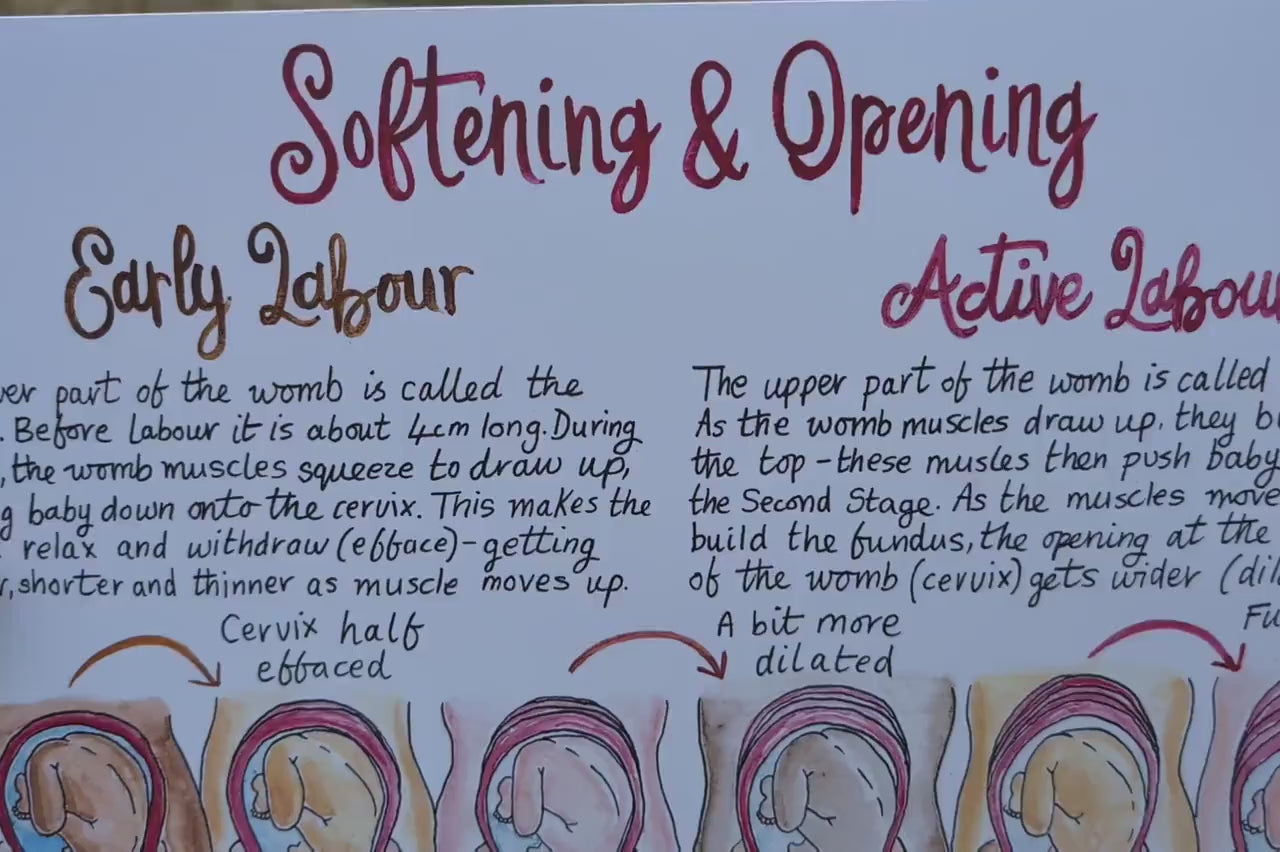 Softening & Opening
Early Labour
part of the womb is called the
. Before labour it is about 4cm long. During
, the womb muscles squeeze to draw up,
baby down onto the cervix. This makes the
relax and withdraw (efface) - getting
, shorter and thinner as muscle moves up.
Cervix half
effaced
Active Labour
The upper part of the womb is called
As the womb muscles draw up, they
the top - these musles then push baby
the Second Stage. As the muscles move
build the fundus, the opening at the
of the womb (cervix) gets wider
A bit more
dilated